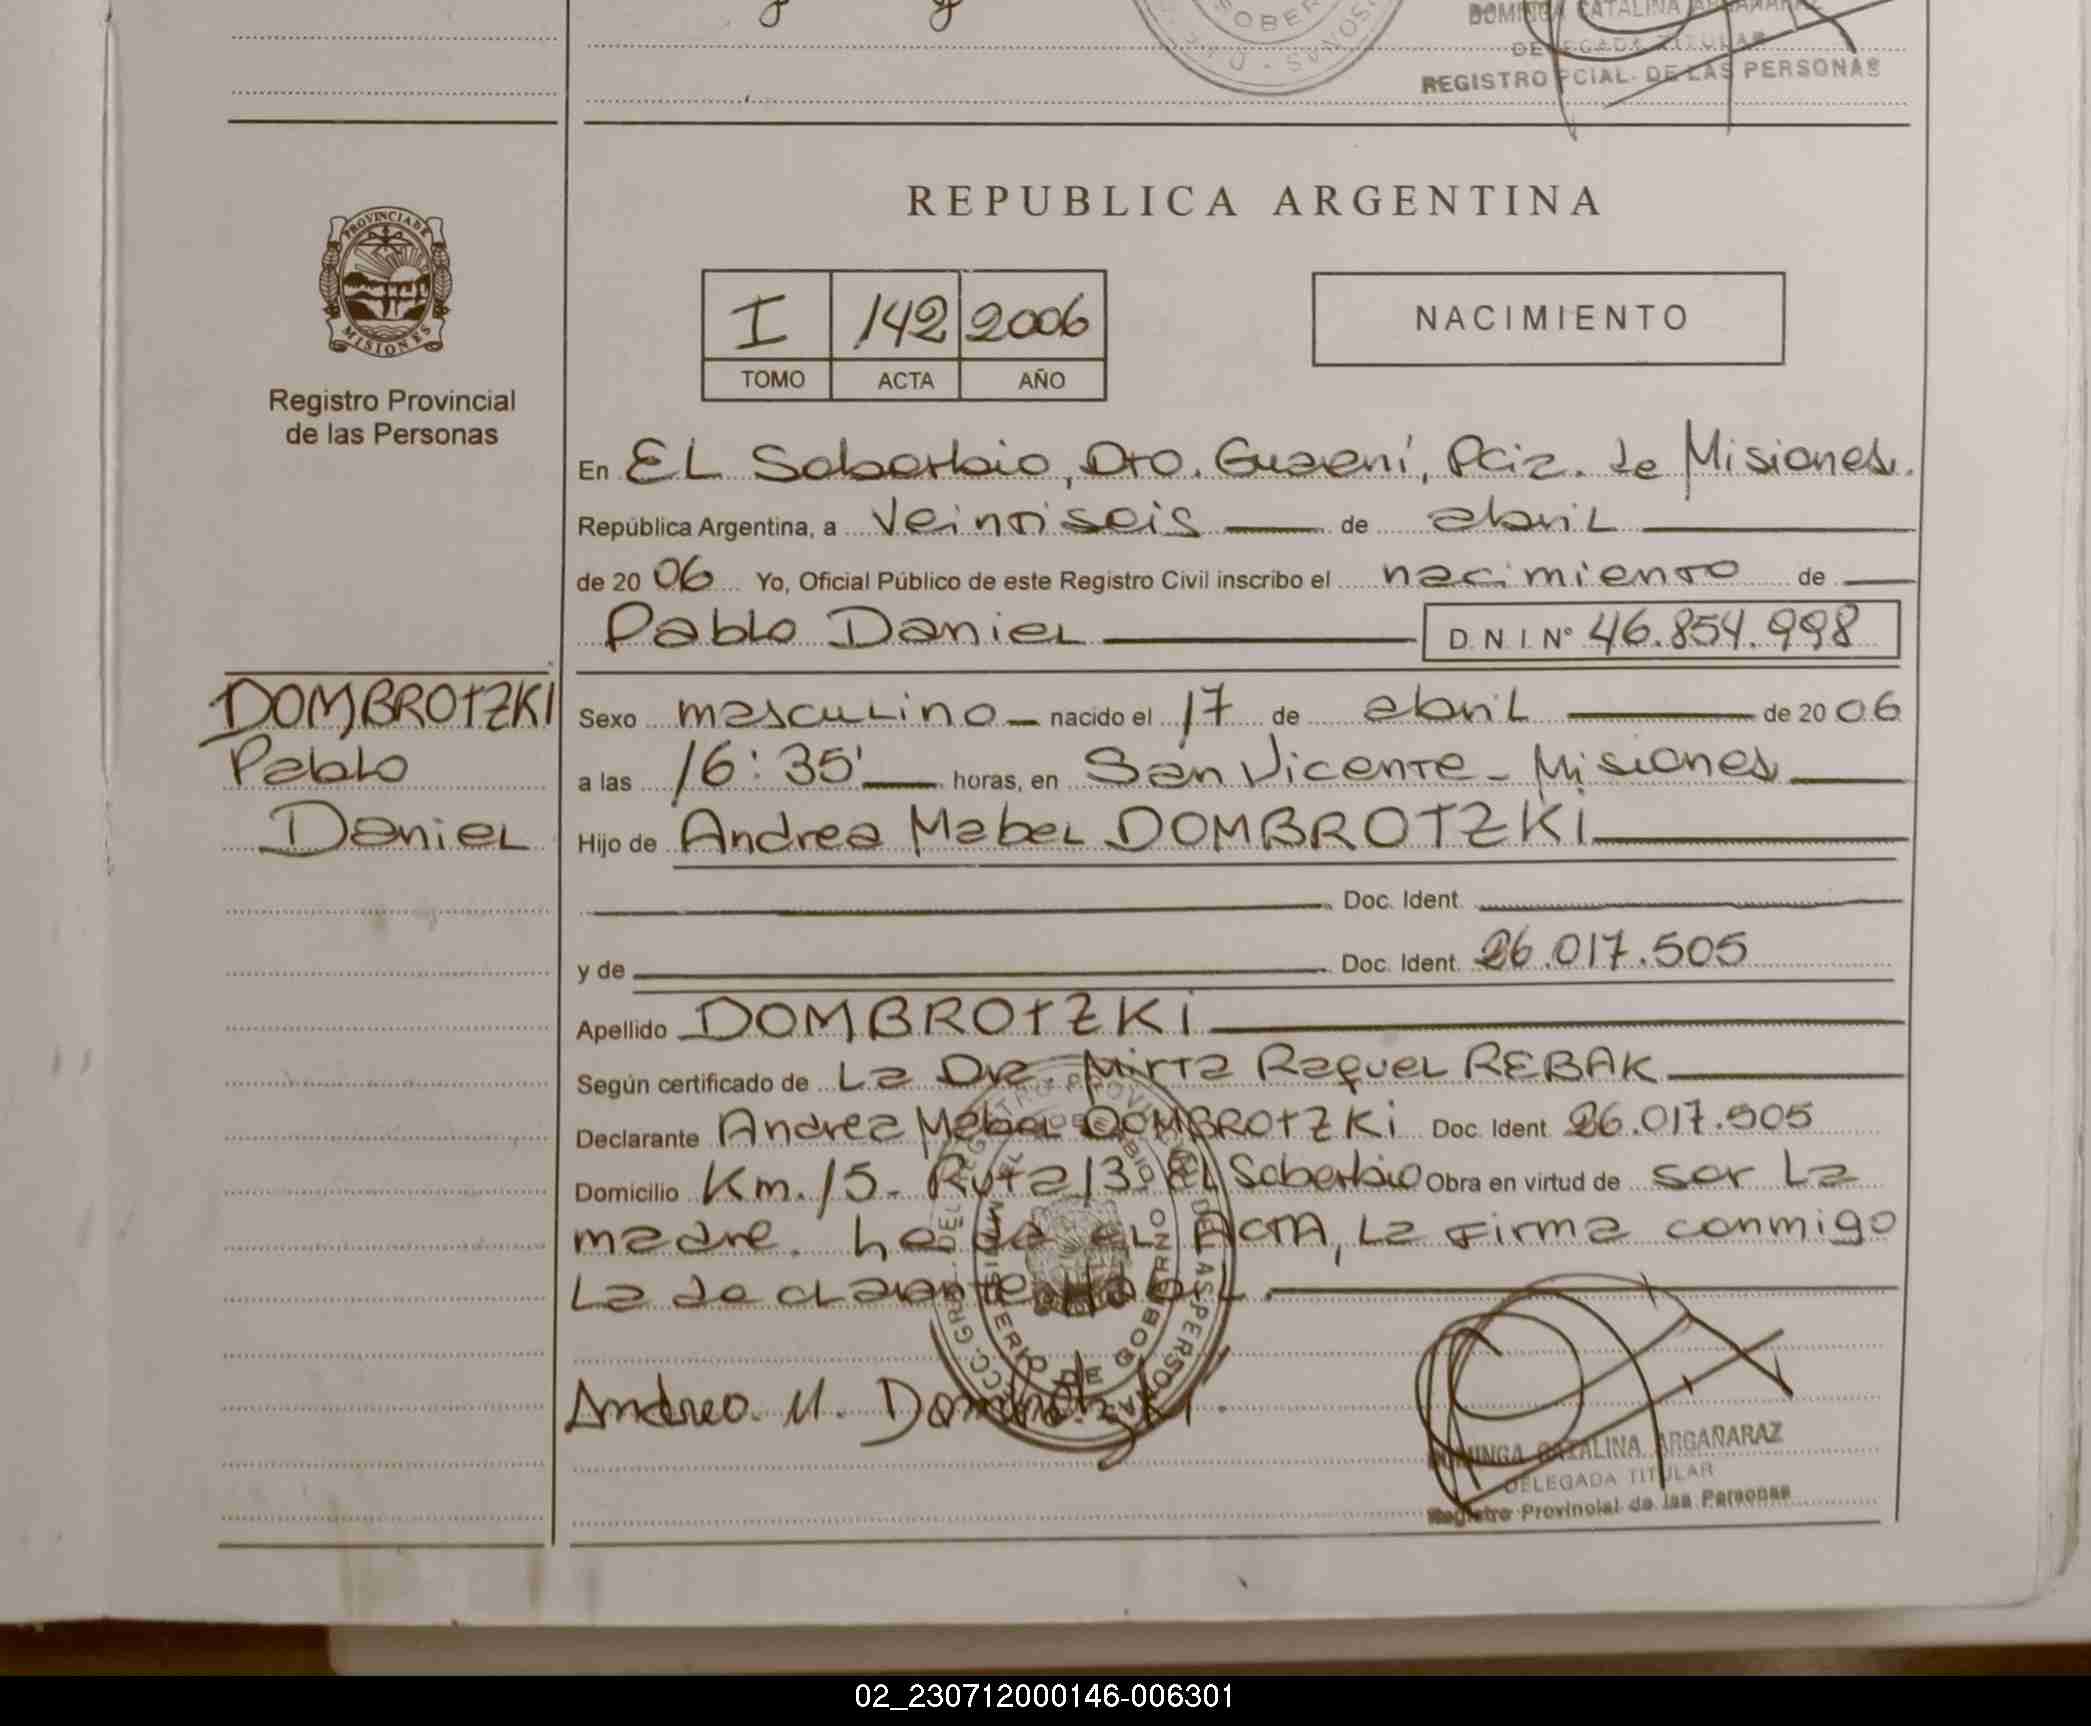 DOMINGA CATALINA ARGAÑARAZ
DELEGADA TITULAR
REGISTRO PCIAL. DE LAS PERSONAS
REPUBLICA ARGENTINA
PROVINCIA DE
MISIONES
Registro Provincial
de las Personas
I 142 2006
TOMO ACTA AÑO
NACIMIENTO
En EL Soberbio, Dto. Guaraní, Pcia. de Misiones.
República Argentina, a Veintiseis de abril
de 2006 Yo, Oficial Público de este Registro Civil inscribo el nacimiento de
Pablo Daniel D. N. I. Nº 46.854.998
DOMBROTZKI
Pablo
Daniel
Sexo masculino nacido el 17 de abril de 2006
a las 16:35' horas, en San Vicente - Misiones
Hijo de Andrea Mabel DOMBROTZKI
Doc. Ident.
y de Doc. Ident. 26.017.505
Apellido DOMBROTZKI
Según certificado de La Dra Mirta Raquel REBAK
Declarante Andrea Mabel DOMBROTZKI Doc. Ident. 26.017.505
Domicilio Km. 15 - Ruta 13 - El Soberbio Obra en virtud de ser La
madre. Leida el ACTA, La firma conmigo
La declarante
Andrea M. Dombrotzki.
DOMINGA CATALINA ARGAÑARAZ
DELEGADA TITULAR
Registro Provincial de las Personas
02_230712000146-006301